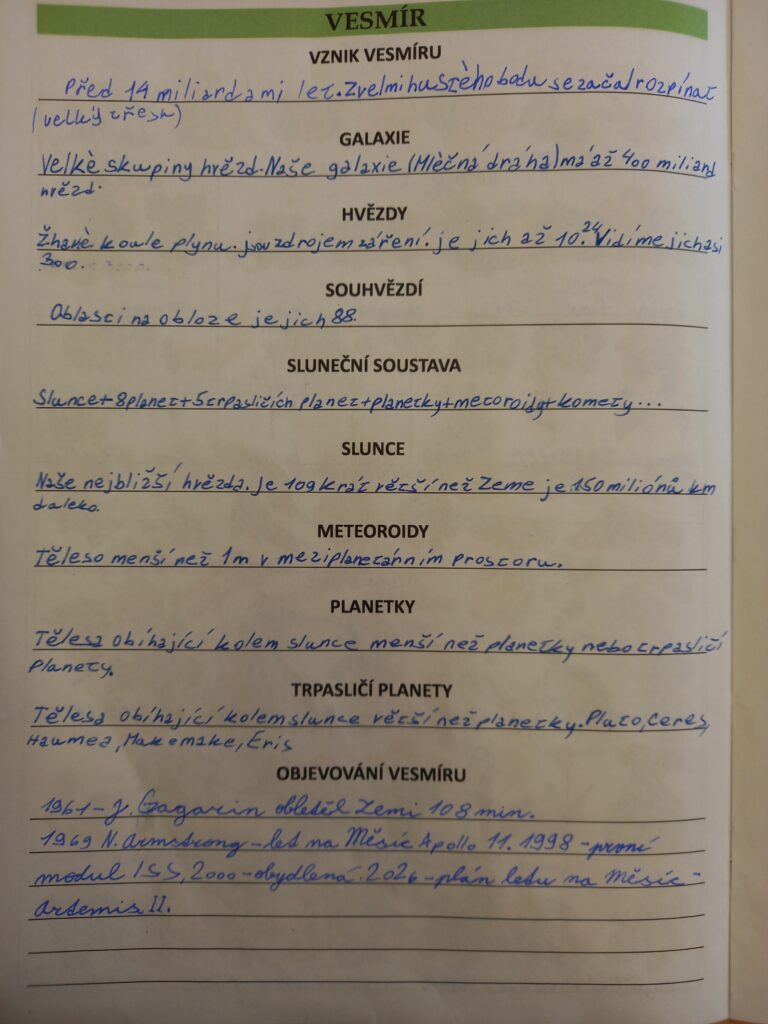 VESMÍR
VZNIK VESMÍRU
Před 14 miliardami let. Z velmi hustého bodu se začal rozpínat
(velký třesk)
GALAXIE
Velké skupiny hvězd. Naše galaxie (Mléčná dráha) má až 400 miliard
hvězd.
HVĚZDY
Žhavé koule plynu. jsou zdrojem záření. je jich až 10.²⁴ Vidíme jich asi
300.
SOUHVĚZDÍ
Oblasti na obloze je jich 88.
SLUNEČNÍ SOUSTAVA
Slunce+8planet+5trpasličích planet+planetky+metoroidy+komety...
SLUNCE
Naše nejbližší hvězda. je 109krát větší než Zeme je 150 miliónů km
daleko.
METEOROIDY
Těleso menší než 1m v meziplanetárním prostoru.
PLANETKY
Tělesa obíhající kolem slunce menší než planetky nebo trpasličí
planety.
TRPASLIČÍ PLANETY
Tělesa obíhající kolem slunce větší než planetky. Pluto, Ceres,
Haumea, Makemake, Eris
OBJEVOVÁNÍ VESMÍRU
1961 - J. Gagarin obletěl Zemi 108 min.
1969 N. Armstrong - let na Měsíc Apollo 11. 1998 - první
modul ISS, 2000 - obydlená. 2026 - plán letu na Měsíc -
Artemis II.